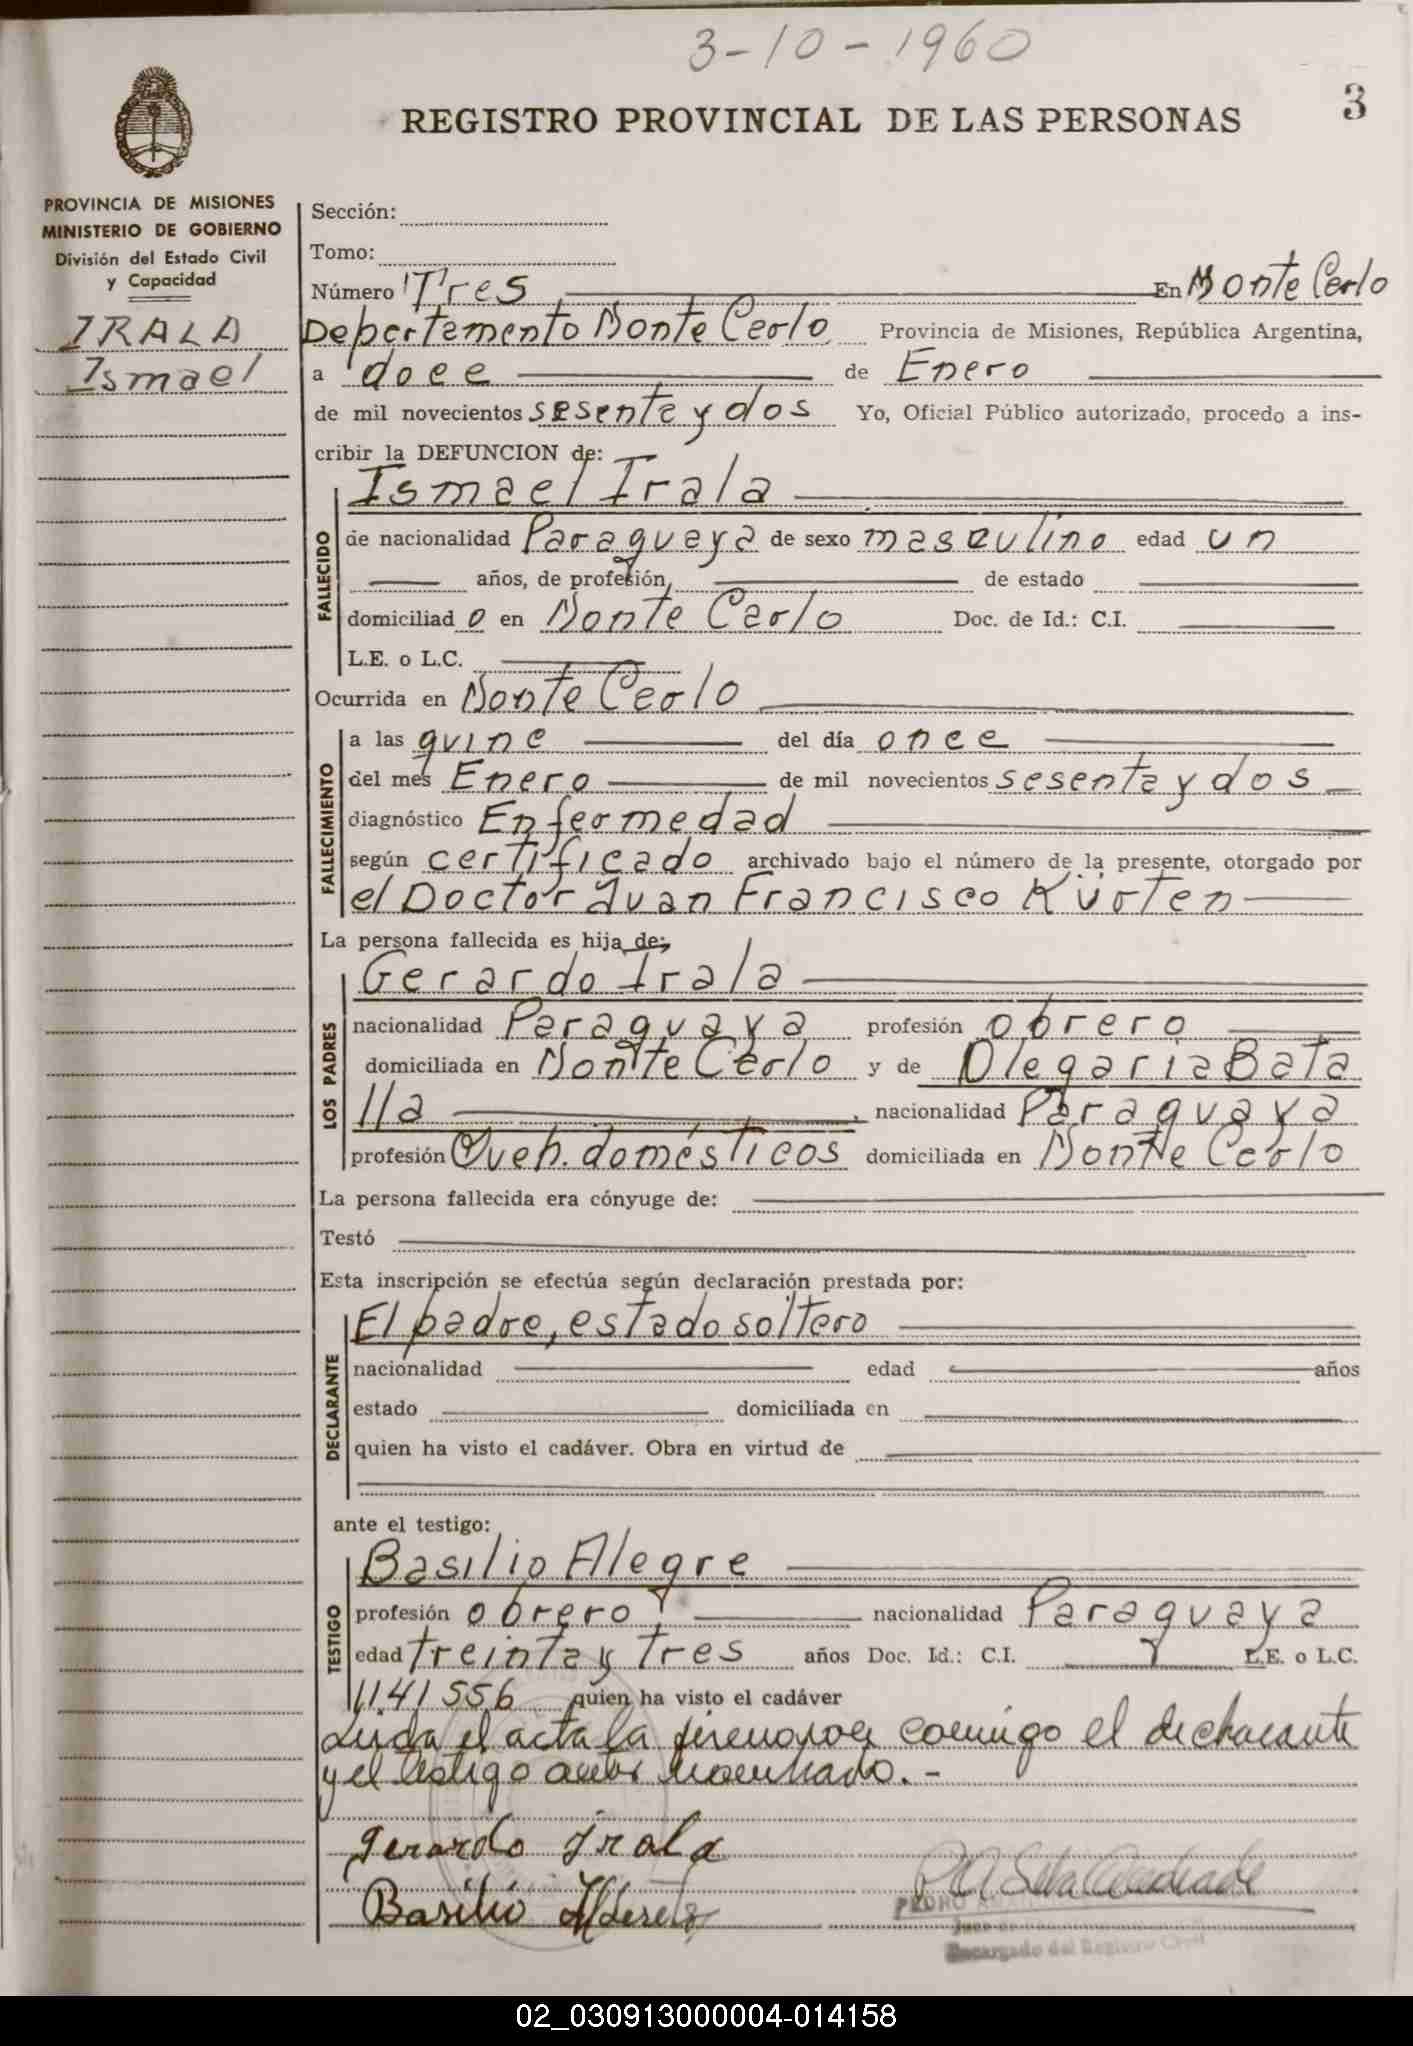 3-10-1960
REGISTRO PROVINCIAL DE LAS PERSONAS
3
PROVINCIA DE MISIONES
MINISTERIO DE GOBIERNO
División del Estado Civil
y Capacidad
IRALA
Ismael
Sección:
Tomo:
Número Tres En Monte Carlo
Departamento Monte Carlo Provincia de Misiones, República Argentina,
a doce de Enero
de mil novecientos sesenta y dos Yo, Oficial Público autorizado, procedo a ins-
cribir la DEFUNCION de:
Ismael Irala
FALLECIDO
de nacionalidad Paraguaya de sexo masculino edad un
años, de profesión de estado
domiciliado en Monte Carlo Doc. de Id.: C.I.
L.E. o L.C.
Ocurrida en Monte Carlo
FALLECIMIENTO
a las quince del día once
del mes Enero de mil novecientos sesenta y dos
diagnóstico Enfermedad
según certificado archivado bajo el número de la presente, otorgado por
el Doctor Juan Francisco Kürten
La persona fallecida es hija de:
LOS PADRES
Gerardo Irala
nacionalidad Paraguaya profesión obrero
domiciliada en Monte Carlo y de Olegaria Bata
lla nacionalidad Paraguaya
profesión Queh. domésticos domiciliada en Monte Carlo
La persona fallecida era cónyuge de:
Testó
Esta inscripción se efectúa según declaración prestada por:
DECLARANTE
El padre, estado soltero
nacionalidad edad años
estado domiciliada en
quien ha visto el cadáver. Obra en virtud de
ante el testigo:
TESTIGO
Basilio Alegre
profesión obrero nacionalidad Paraguaya
edad treinta y tres años Doc. Id.: C.I. L.E. o L.C.
1141556 quien ha visto el cadáver
Leida el acta la firman por comigo el declarante
y el testigo antes nombrado.-
Gerardo Irala
Basilio
PEDRO
Encargado del Registro Civil
02_030913000004-014158